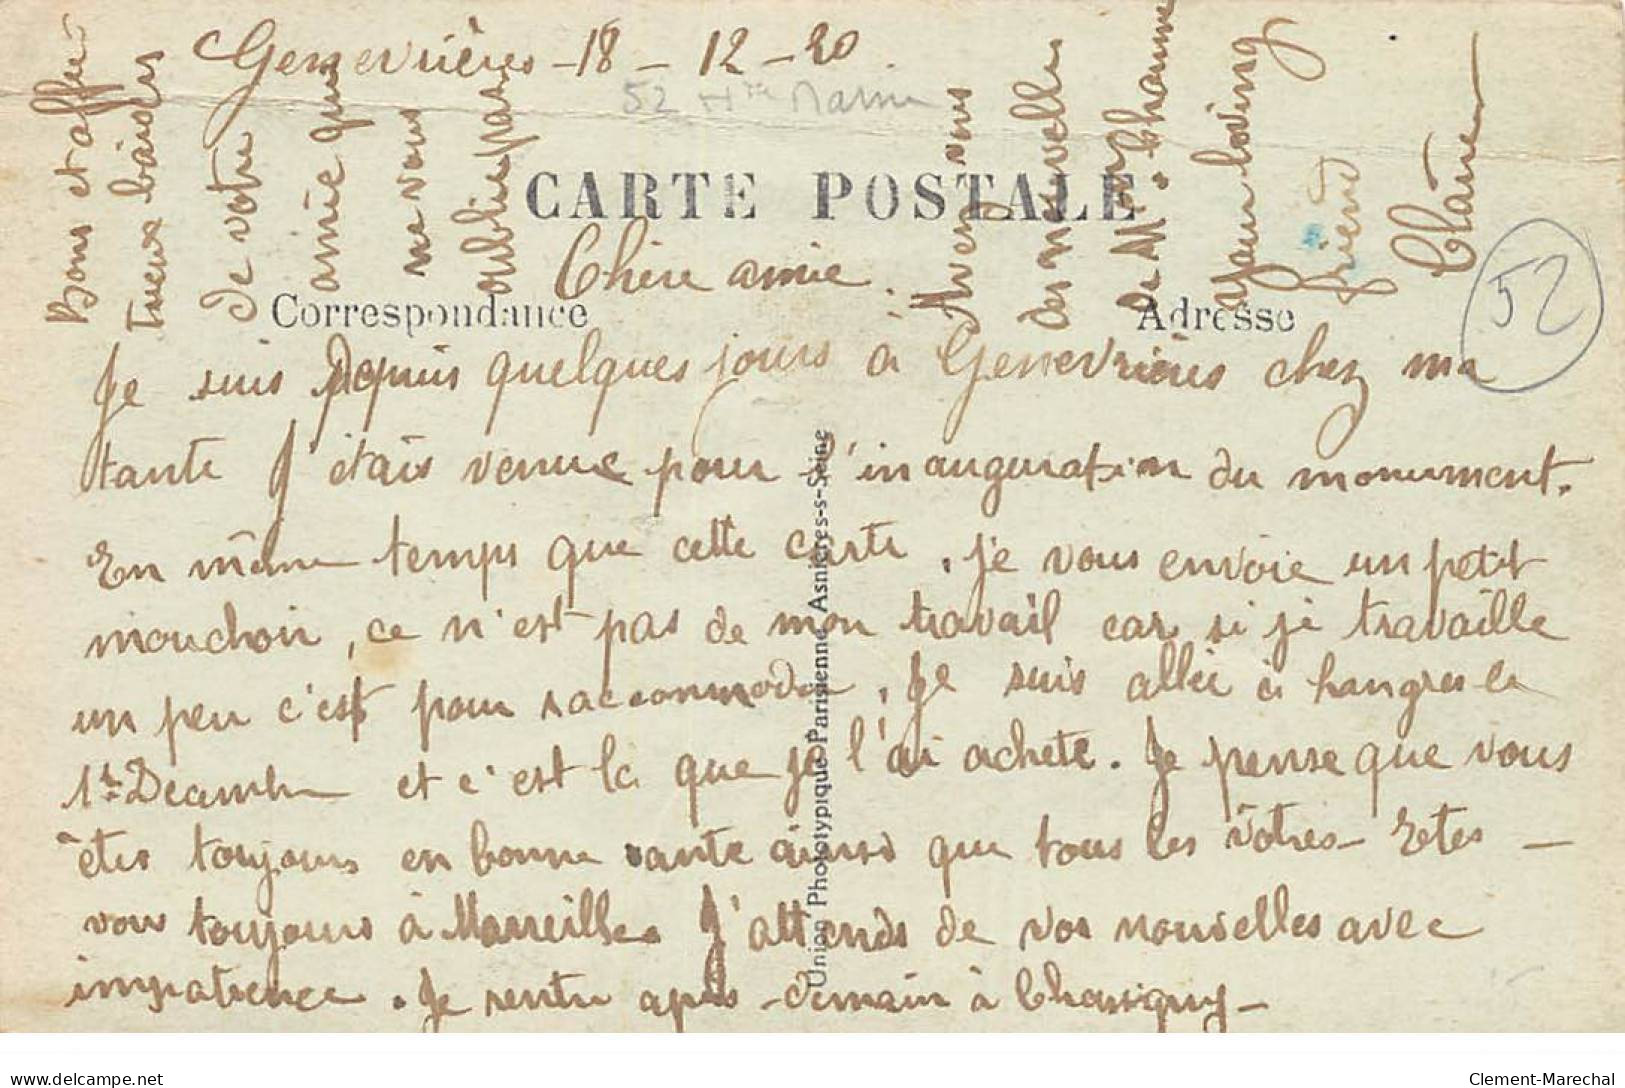 Genevrières - 18 - 12 - 20
52 Hte Marne
CARTE POSTALE
Chère amie.
Correspondance
Adresse
52
Je suis depuis quelques jours à Genevrières chez ma
tante J'étais venue pour l'inauguration du monument.
En même temps que cette carte, je vous envoie un petit
mouchoir, ce n'est pas de mon travail car si je travaille
un peu c'est pour raccommoder, Je suis allée à Langres le
1er Décembre et c'est là que je l'ai acheté. Je pense que vous
êtes toujours en bonne santé ainsi que tous les vôtres - Etes -
vous toujours à Marseille. J'attends de vos nouvelles avec
impatience. Je rentre après-demain à Chassigny -
Bons et affec
tueux baisers
de votre
amie qui
ne vous
oublie pas
Avez vous
des nouvelles
de M.
your loving
friend
Claire
Union Phototypique Parisienne Asnières-s-Seine
delcampe.net
Clement-Marechal